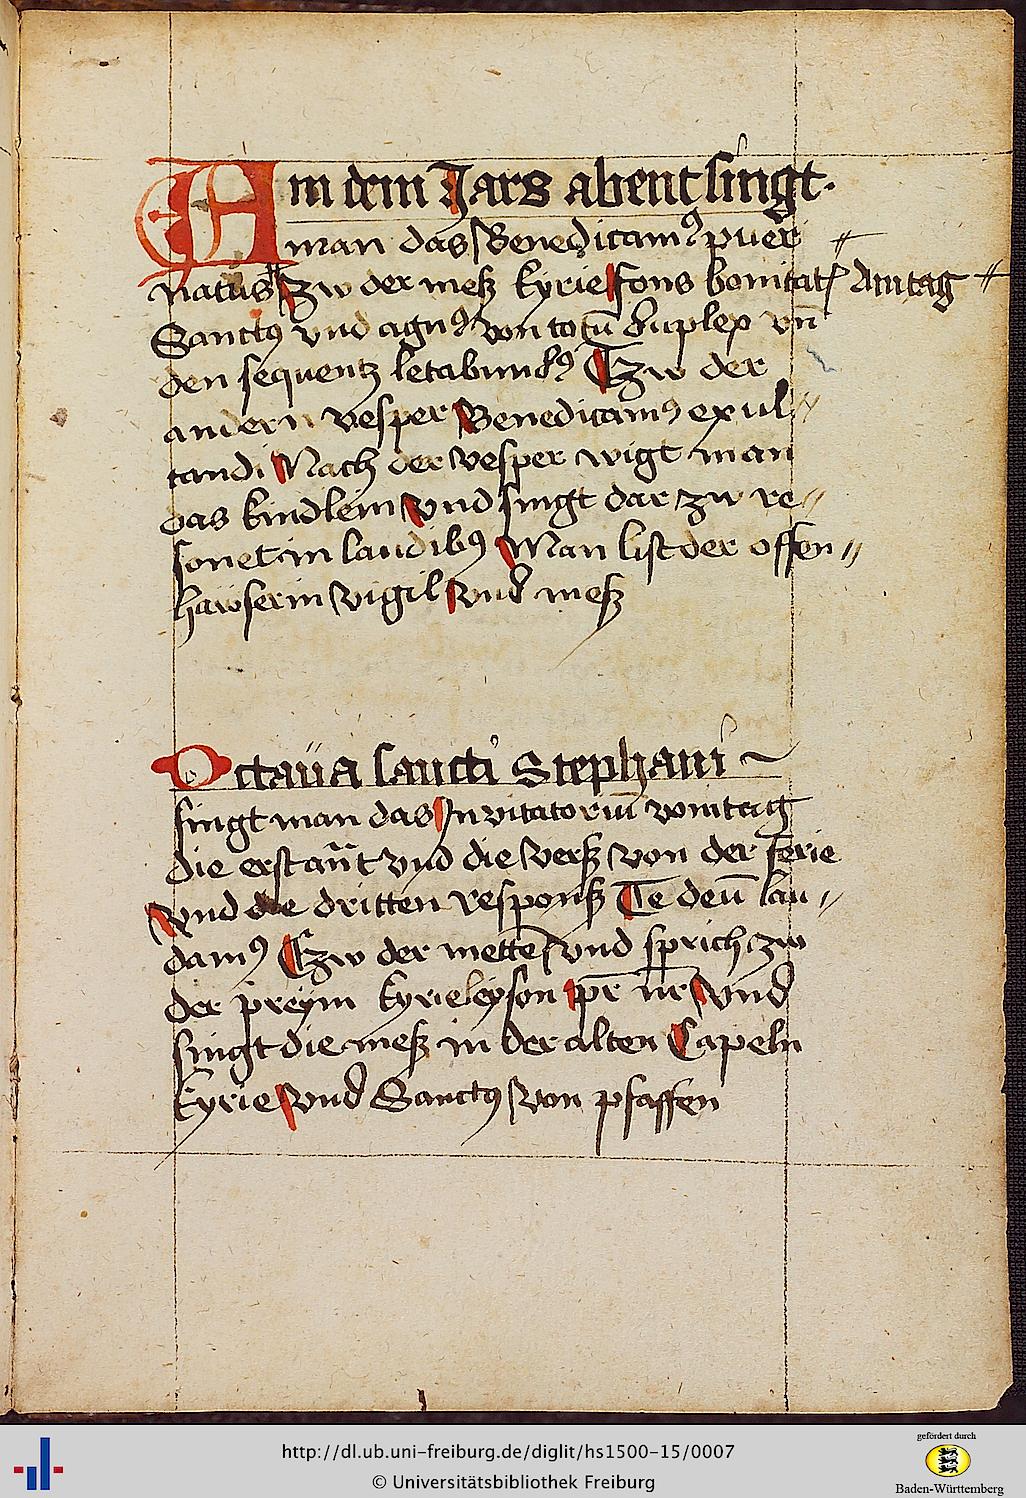 Am dem Jars abent singt.
man das Benedicamꝰ puer
natus Zw der mesz kyrie fons bonitatꝭ Am tag
Sanctꝰ vnd agnꝰ von totū duplex vn̄
den sequentz letabundꝰ Tzw der
andern vesper Benedicamꝰ exul〃
tandi Nach der vesper wigt man
das kindlein Vnd singt dar zw re〃
sonet in laudibꝰ Man list der offen〃
hawserin vigil Vnd mesz
Octaūa sancti Stephani ~
singt man das Jnvitatoriū vom tag
die erst aūt vnd die versz von der ferie
Vnd die dritten responsz Te deū lau〃
damꝰ Tzw der mettē vnd sprich zw
der preÿm kyrieleÿson pr̄ nr̄ Vnd
singt die mesz in der alten Capeln
kyrie Vnd Sanctꝰ von pfaffen
http://dl.ub.uni-freiburg.de/diglit/hs1500-15/0007
© Universitätsbibliothek Freiburg
gefördert durch
Baden-Württemberg